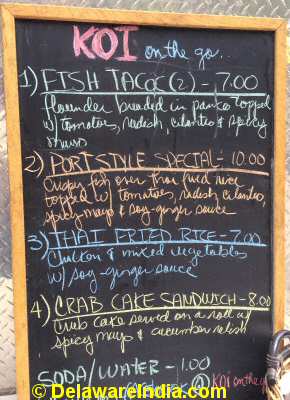 KOI on the go..
1) FISH TACOS (2) - 7.00
flounder breaded in panko topped
w/ tomatoes, radish, cilantro & spicy
mayo
2) PORTSTYLE SPECIAL - 10.00
Crispy fish over thai fried rice
topped w/ tomatoes, radish, cilantro,
spicy mayo & soy-ginger sauce
3) THAI FRIED RICE - 7.00
Chicken & mixed vegetables
w/ soy-ginger sauce
4) CRAB CAKE SANDWICH - 8.00
Crab cake served on a roll w/
spicy mayo & cucumber relish
SODA/WATER - 1.00
@ KOI on the go
© DelawareIndia.com